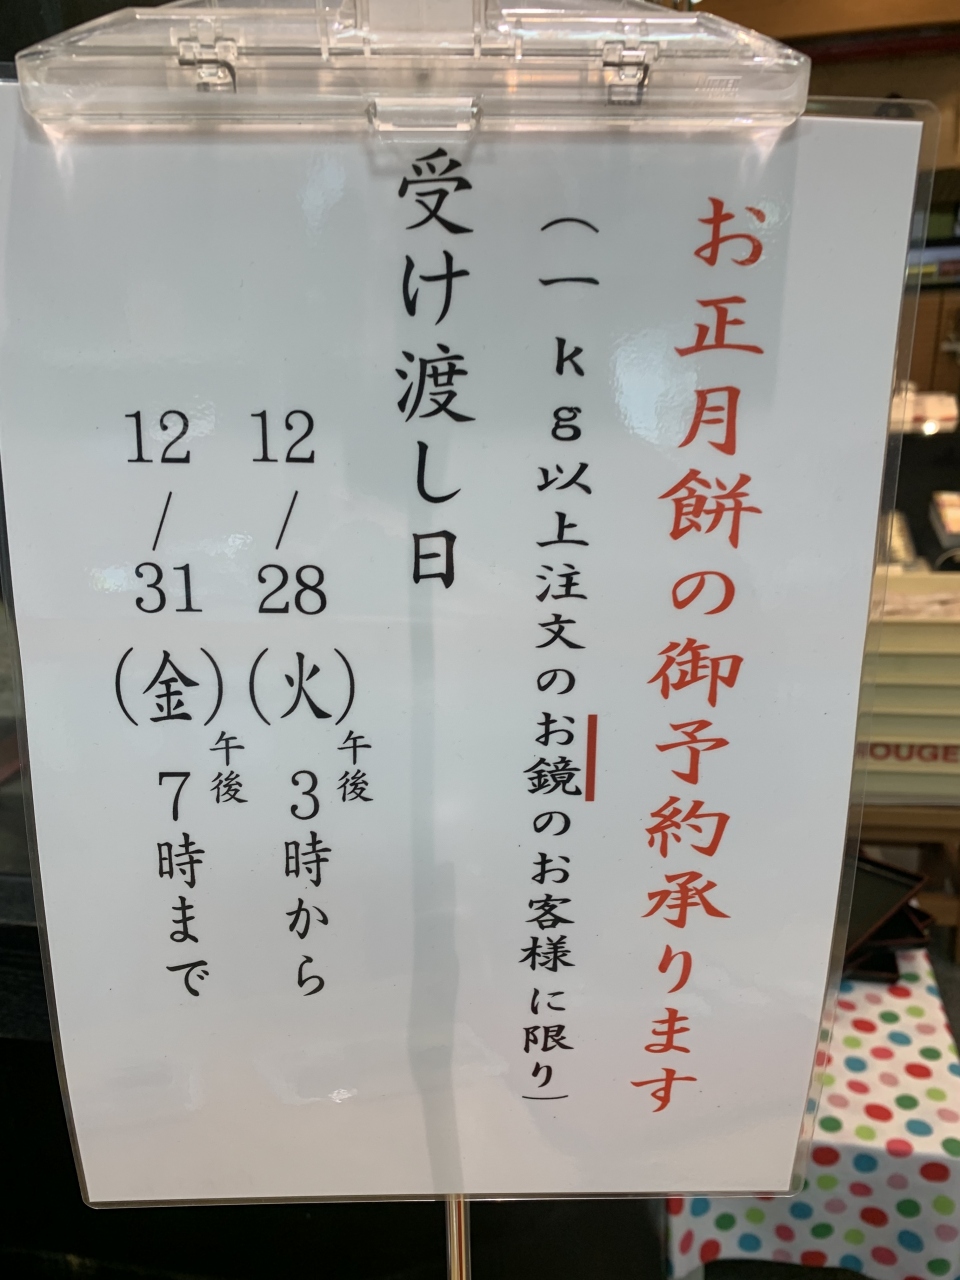 お正月餅の御予約承ります
（一kg以上注文のお鏡のお客様に限り）
受け渡し日
12/28（火）午後3時から
12/31（金）午後7時まで
OUGE